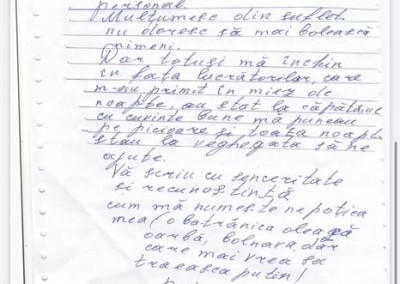 personal.
Multumesc din suflet
nu doresc să mai bolească
nimeni.
Dar totuși mă închin
în fața lucrătorilor, care
m-au primit în miez de
noapte, au stat la căpătâiul
cu cuvinte bune mă puneau
pe picioare și toată noapte
stau la veghegata să ne
ajute.
Vă scriu cu senceritate
si recunostință
cum mă numeste nepotica
mea (o batrânica oleagă
oarbă, bolnava dar
care mai vrea sa
traeasca putin!